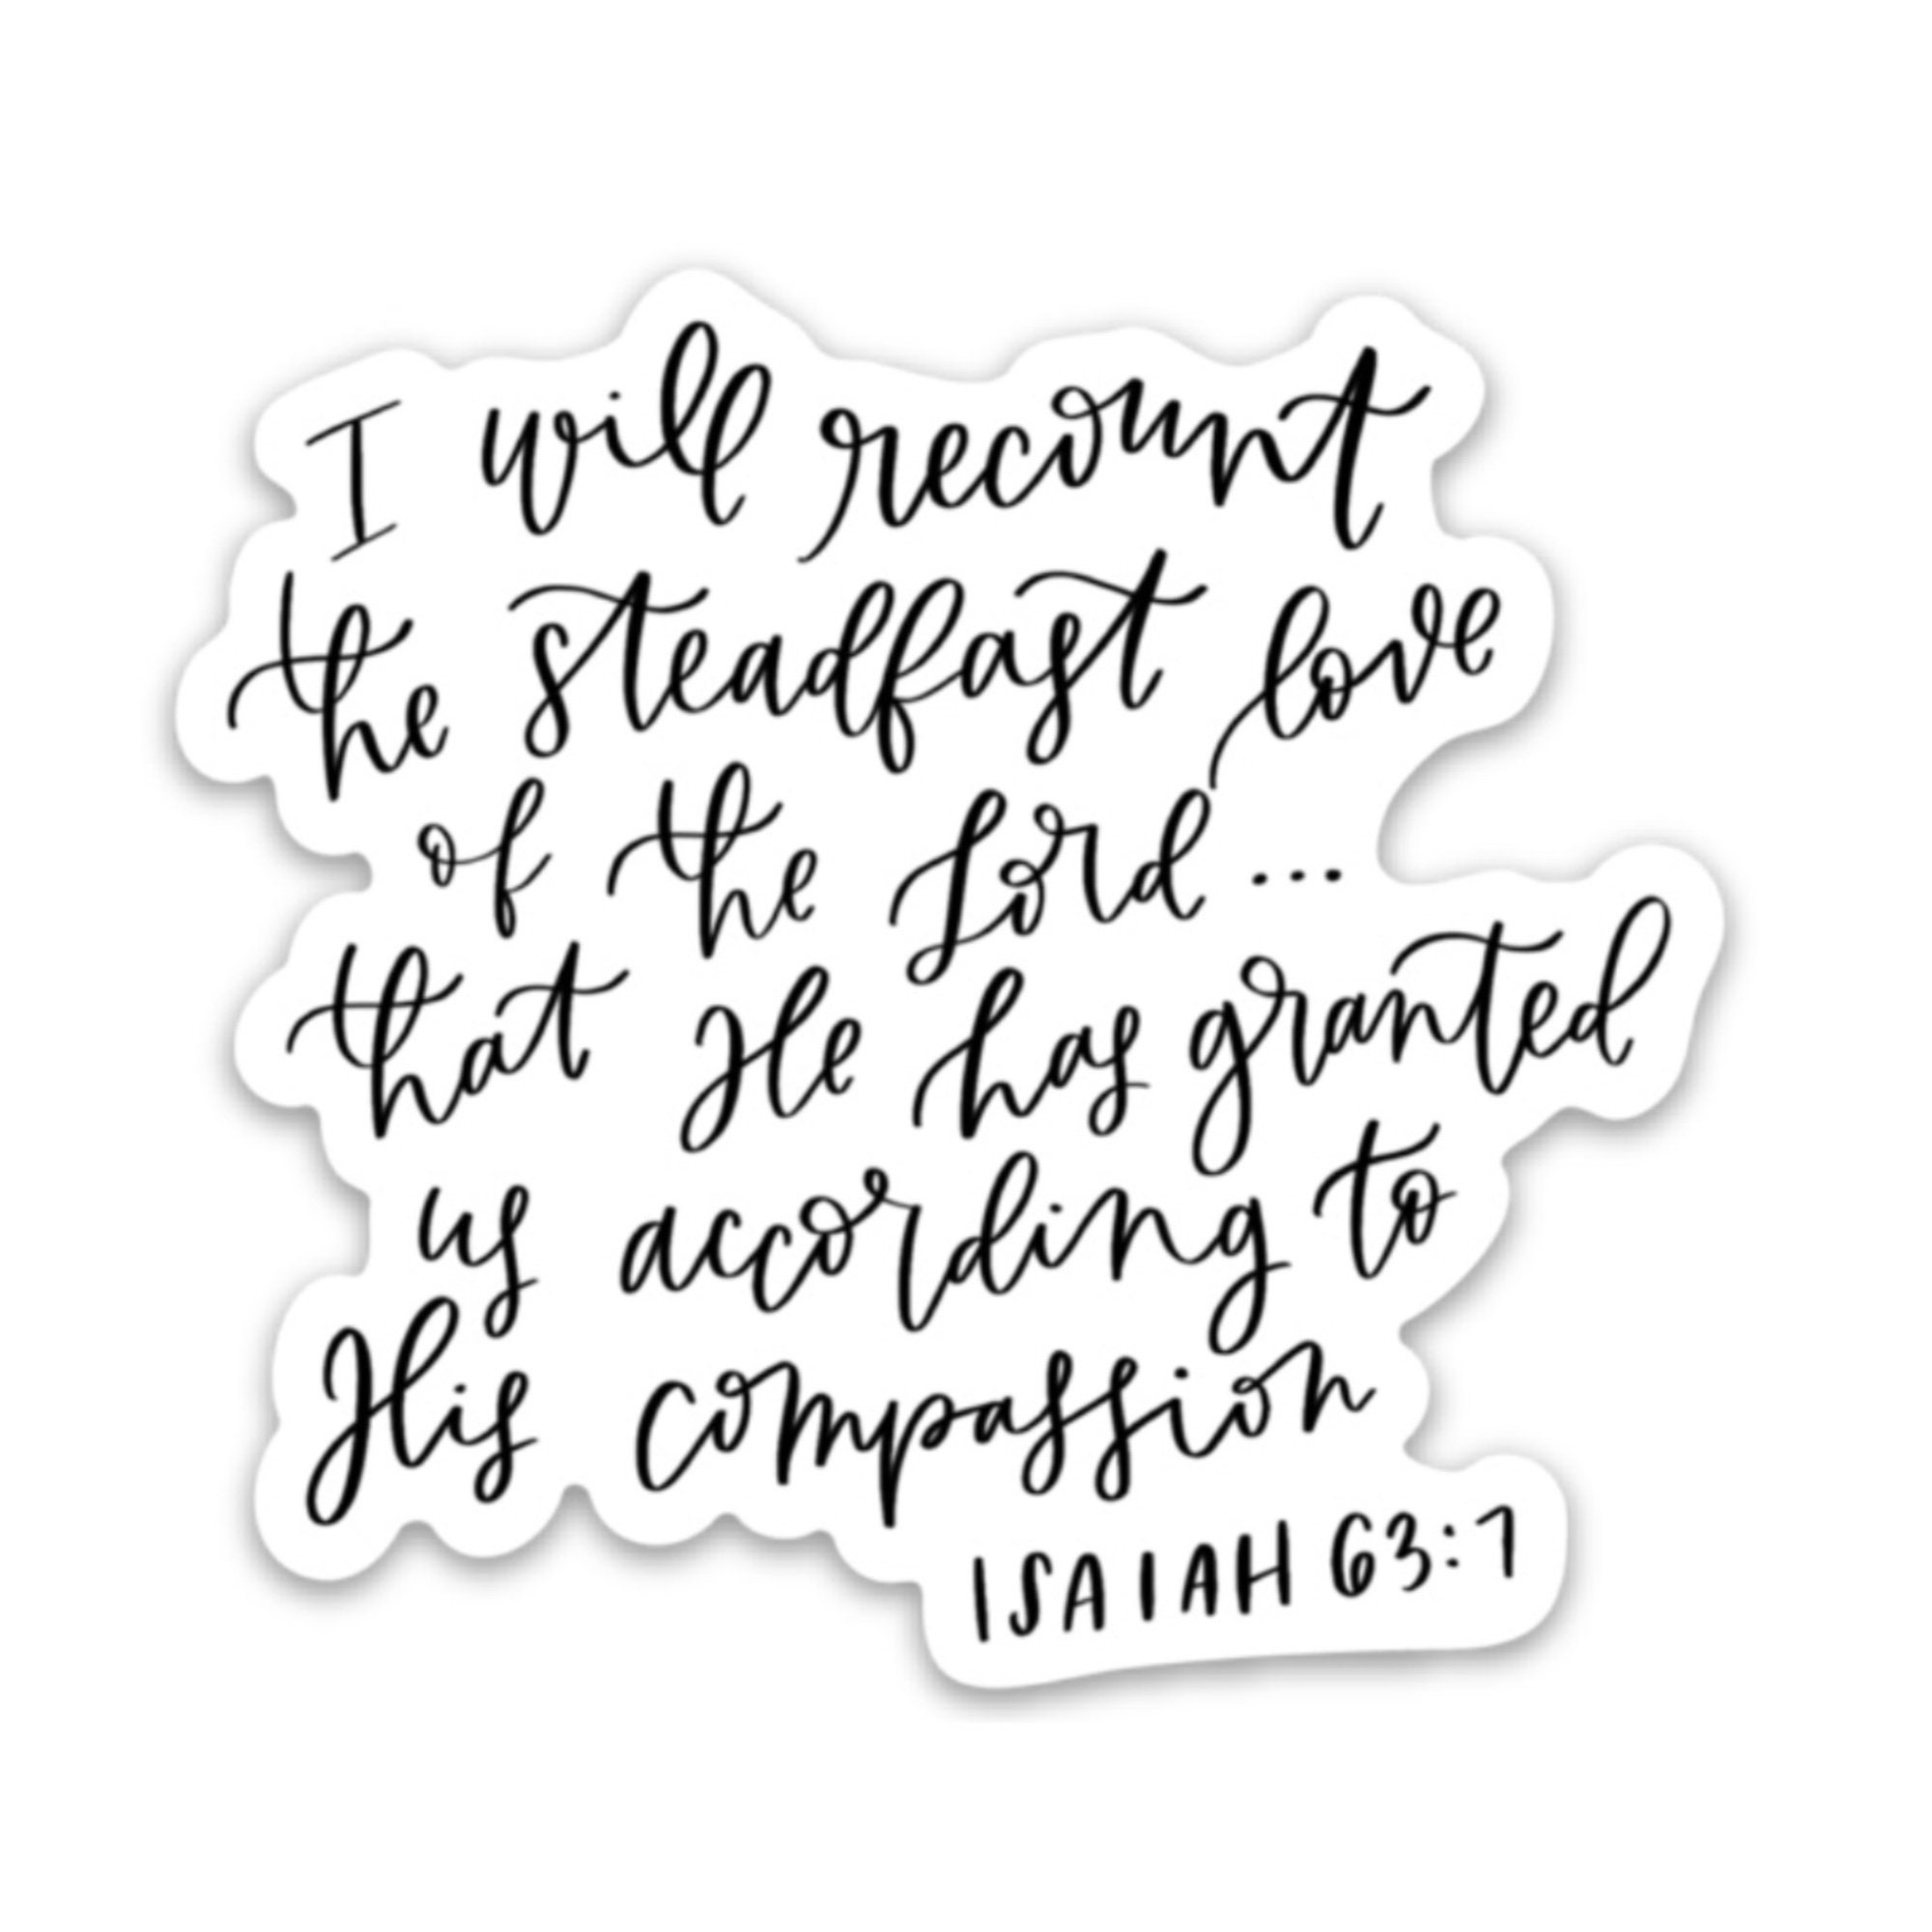 I will recount
the steadfast love
of the Lord...
that He has granted
us according to
His compassion
ISAIAH 63:7